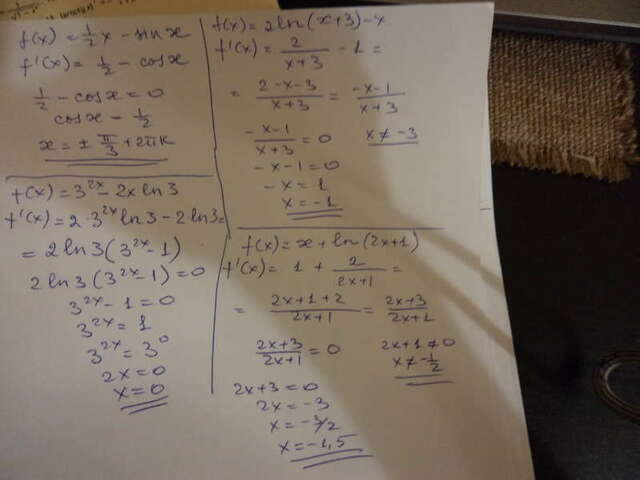 f(x) = 1/2 x - sin x
f'(x) = 1/2 - cos x
1/2 - cos x = 0
cos x - 1/2
x = ± π/3 + 2πk
f(x) = 2 ln(x+3) - x
f'(x) = 2/(x+3) - 1 =
= (2-x-3)/(x+3) = (-x-1)/(x+3)
(-x-1)/(x+3) = 0 x ≠ -3
-x-1=0
-x = 1
x = -1
f(x) = 3^(2x) - 2x ln 3
f'(x) = 2·3^(2x) ln 3 - 2 ln 3 =
= 2 ln 3 (3^(2x) - 1)
2 ln 3 (3^(2x) - 1) = 0
3^(2x) - 1 = 0
3^(2x) = 1
3^(2x) = 3^0
2x = 0
x = 0
f(x) = x + ln(2x+1)
f'(x) = 1 + 2/(2x+1) =
= (2x+1+2)/(2x+1) = (2x+3)/(2x+1)
(2x+3)/(2x+1) = 0 2x+1 ≠ 0
x ≠ -1/2
2x+3 = 0
2x = -3
x = -3/2
x = -1,5